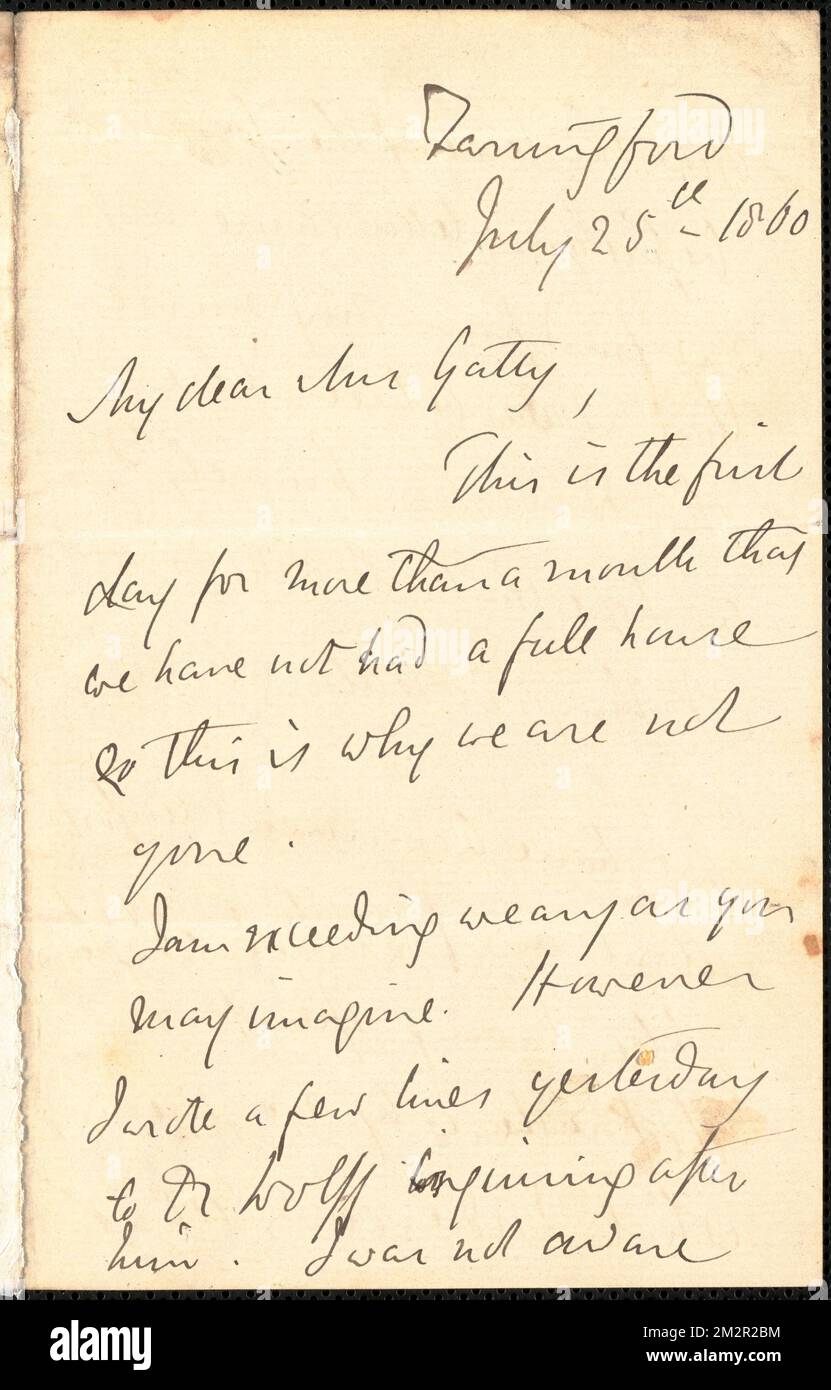 Farringford
July 25th - 1860
My dear Mrs Gatty,
This is the first
day for more than a month that
we have not had a full house
so this is why we are not
gone.
I am exceeding weary as you
may imagine. However
I wrote a few lines yesterday
to Dr Wolff inquiring after
him. I was not aware
alamy
Image ID: 2M2R2BM
www.alamy.com